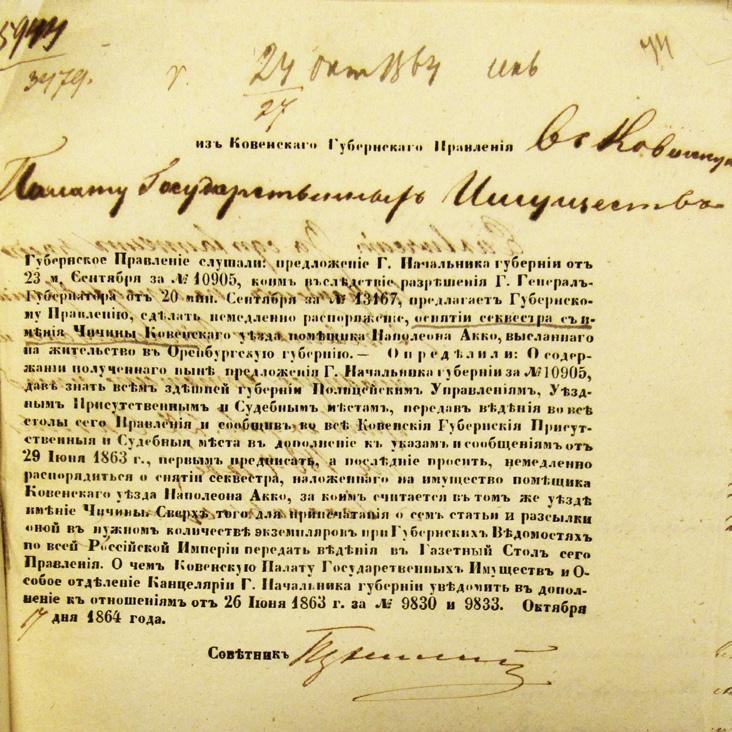 5944
3479.
24 окт 1864
27
изъ Ковенскаго Губернскаго Правленія Въ Ковенскую
Палату Государственныхъ Имуществъ
Губернское Правленіе слушали: предложеніе Г. Начальника губерніи отъ
23 м. Сентября за № 10905, коимъ вслѣдствіе разрѣшенія Г. Генералъ-
Губернатора отъ 20 мин. Сентября за № 13167, предлагаетъ Губернско-
му Правленію, сдѣлать немедленно распоряженіе, оснятіи секвестра съ и-
мѣнія Чичины Ковенскаго уѣзда помѣщика Наполеона Акко, высланнаго
на жительство въ Оренбургскую губернію. — Опредѣлили: О содер-
жаніи полученнаго нынѣ предложенія Г. Начальника губерніи за № 10905,
давъ знать всѣмъ здѣшней губерніи Полицейскимъ Управленіямъ, Уѣзд-
нымъ Присутственнымъ и Судебнымъ мѣстамъ, передавъ вѣдѣнія во всѣ
столы сего Правленія и сообщивъ во всѣ Ковенскія Губернскія Присут-
ственныя и Судебныя мѣста въ дополненіе къ указамъ и сообщеніямъ отъ
29 Іюня 1863 г., первымъ предписать, а послѣдніе просить, немедленно
распорядиться о снятіи секвестра, наложеннаго на имущество помѣщика
Ковенскаго уѣзда Наполеона Акко, за коимъ считается въ томъ же уѣздѣ
имѣніе Чичины. Сверхъ того для припечатанія о семъ статьи и разсылки
оной въ нужномъ количествѣ экземпляровъ при Губернскихъ Вѣдомостяхъ
по всей Россійской Имперіи передать вѣдѣнія въ Газетный Столъ сего
Правленія. О чемъ Ковенскую Палату Государственныхъ Имуществъ и О-
собое отдѣленіе Канцеляріи Г. Начальника губерніи увѣдомить въ допол-
неніе къ отношеніямъ отъ 26 Іюня 1863 г. за № 9830 и 9833. Октября
17 дня 1864 года.
Совѣтникъ